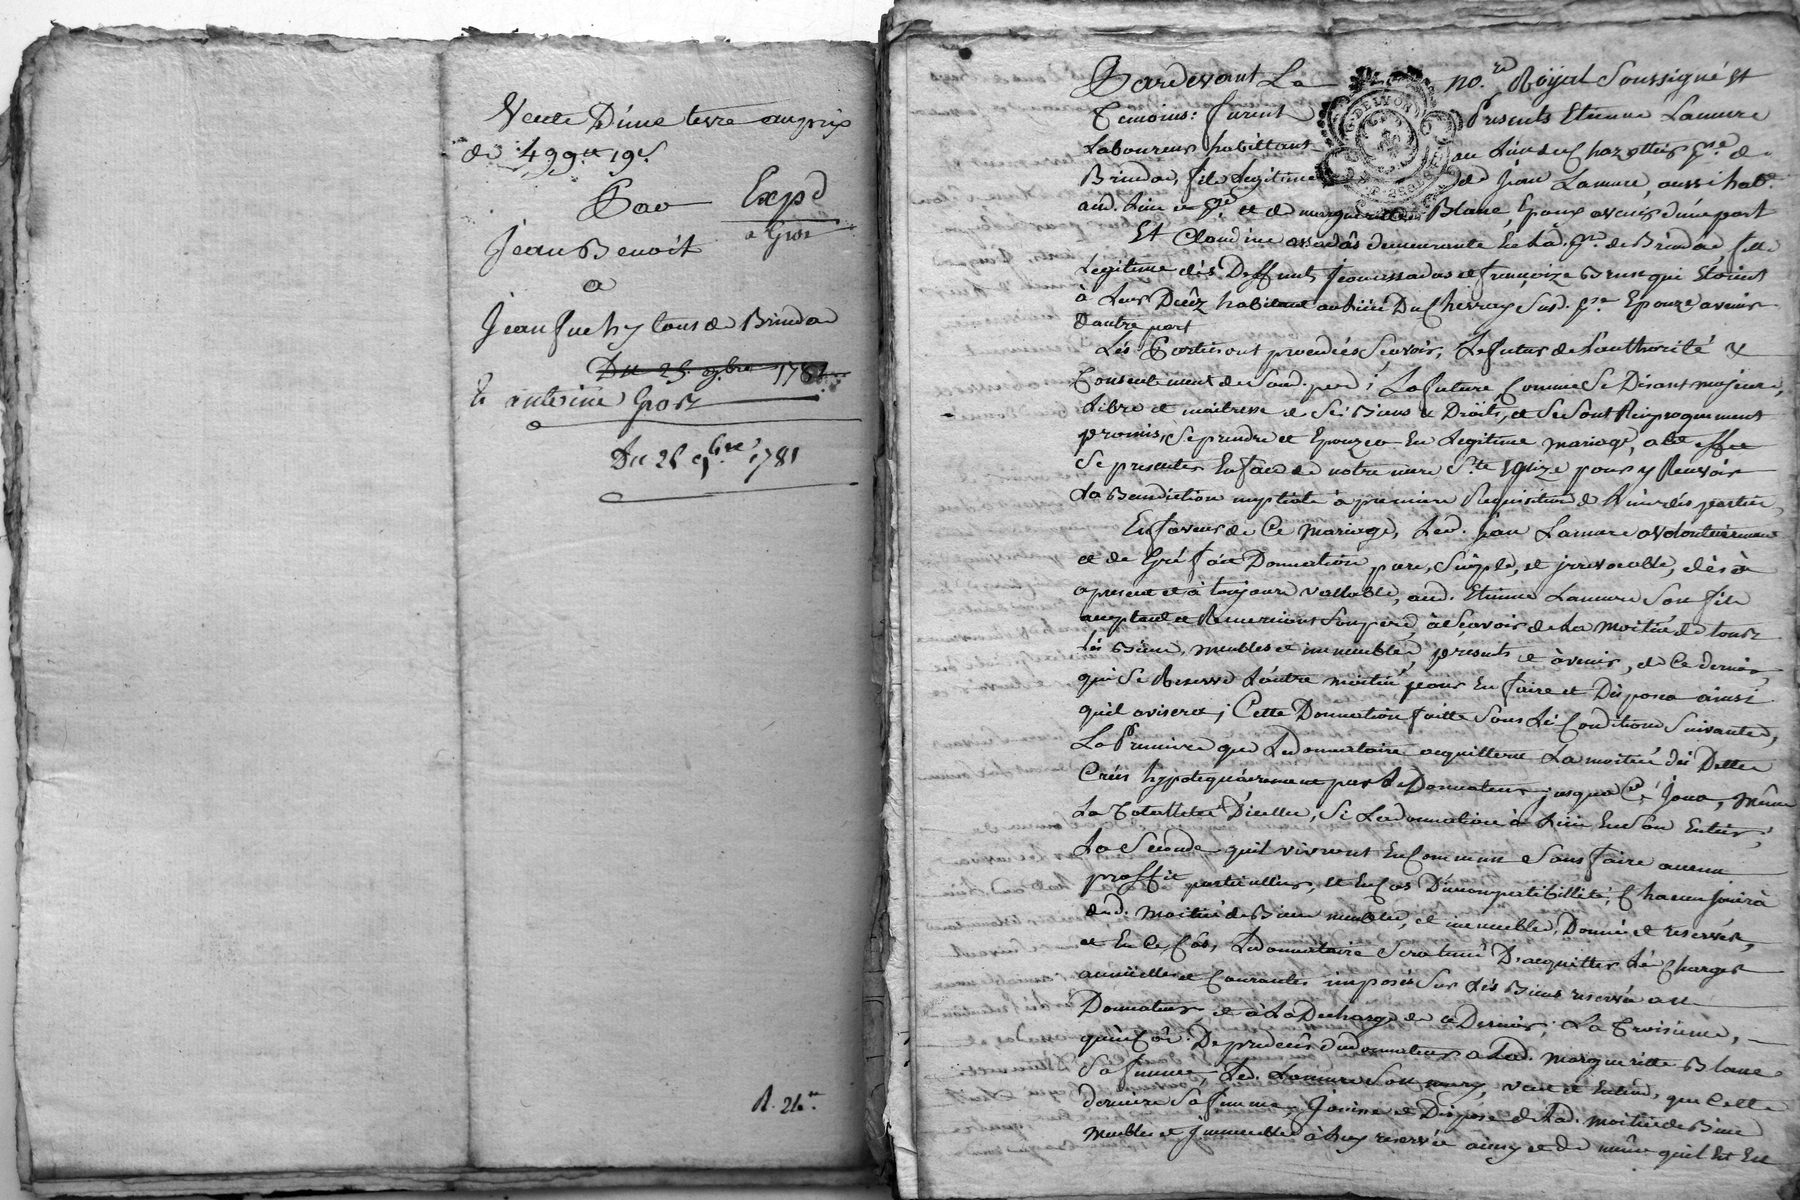 Vente D'une terre au prix
de 499tt 19s
Par Expd
Jean Benoit a Gros
a
Jean Juchy tous de Brindas
Du 25 9bre 1781
Et antoine Gros
Du 25 9bre 1781
R. 26
Pardevant Le no.re Royal Soussigné Et
Temoins: furent Presents Etienne Lamure
Laboureur habittant au Lieu du Chazottier psse de
Brindas, fils Legitime de Jean Lamure, aussi habt
aud. Lieu et psse et de margueritte Blanc, Epoux avenir d'une part
Et Claudine demeurante En Lad. psse de Brindas fille
Legitime dés Deffunts et françoize Brun qui Etoient
à Leur Décéz habitant au Lieu Du Chervay Susd. psse Epouze avenir
d'autre part
Lés Parties ont procedées, Scavoir, Le futur de L'authorité &
Consentement de Sond. pere; La future Comme Se Disant majeure,
Libre et maitresse de Sés Biens & Droits, et Se Sont Reciproquement
promis, Se prendre et Epouzer En Legitime mariage, a cet effet
Se presenter En face de notre mere Ste Eglize pour y Recevoir
La Benediction nuptiale à premiere Requisition de L'une dés parties,
En faveur de Ce mariage, Led. Jean Lamure a volontairement
et de Gré fait Donnation pure, Simple, et jrrevocable, dès à
apresent et à toujours vallable, aud. Etienne Lamure Son fils
acceptant et Remerciant Son pere, à Scavoir de La moitié de tous
Lés Biens, meubles et immeubles, présents et àvenir, de Ce dernier,
qui Se Reserve L'autre moitié pour En faire et Disposer ainsi
qu'il avisera; Cette Donnation faitte Sous Lés Conditions Suivantes,
La Premiere que Le donnataire acquittera La moitié dés Dettes
Creés hypotequairement par Le Donnateur jusqua Ce Jour, même
La Totallité D'icelles, Si La donnation à Lieu En Son Entier;
La Seconde qu'il vivront En Commun Sans faire aucun
proffit particullier, et En Cas D'incompatibillité, Chacun Jouira
de Sad. moitié de Biens meubles, et immeubles, Donnés et reservés,
et En Ce Cas, Le donnataire Sera tenu D'acquitter Lés Charges
annüelles et Courantes imposés Sur Lés Biens reservés au
Donnateur et à La Decharge de ce Dernier; La Troisieme,
qu'En Cas De prédecés du donnateur a Lad. margueritte Blanc
Sa femme, Led. Lamure Son mary, veut et Entend, que Cette
derniere Sa femme, Jouisse et Dispose de Lad. moitié de Biens
meubles et Jmmeubles à Luy reservés ainsy et de même qu'il Est En